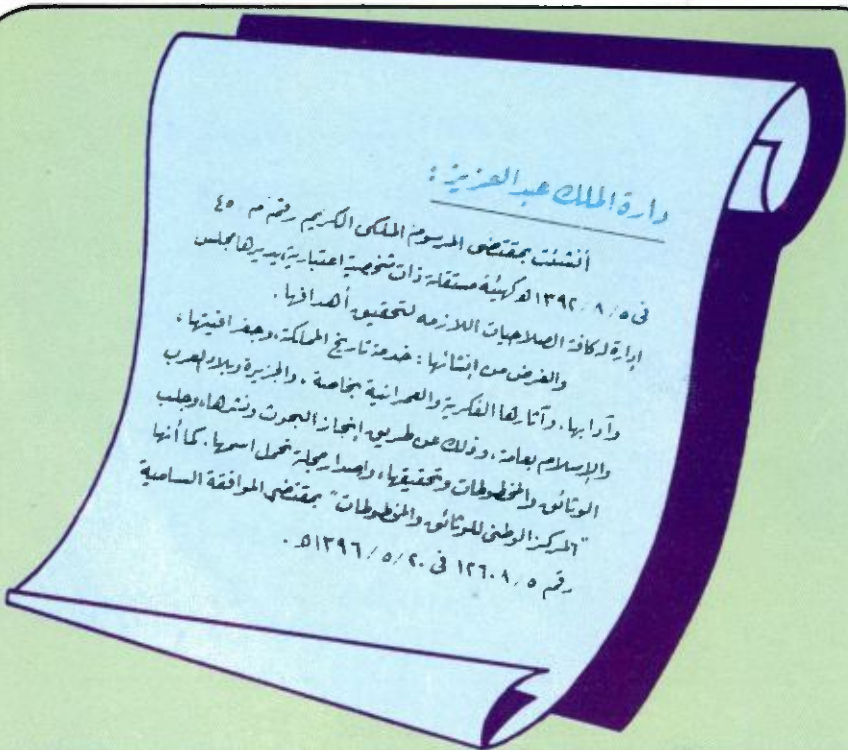 دارة الملك عبدالعزيز :
أنشئت بمقتضى المرسوم الملكى الكريم رقم م / ٤٥
فى ٥ / ٨ / ١٣٩٢ هـ كهيئة مستقلة ذات شخصية اعتبارية يديرها مجلس
إدارة له كافة الصلاحيات اللازمه لتحقيق أهدافها .
والغرض من إنشائها : خدمة تاريخ المملكة ، وجغرافيتها ،
وآدابها ، وآثارها الفكرية والعمرانية بخاصة ، والجزيرة وبلاد العرب
والإسلام بعامة ، وذلك عن طريق إنجاز البحوث ونشرها ، وجلب
الوثائق والمخطوطات وتحقيقها ، وإصدار مجلة تحمل اسمها . كما أنها
"المركز الوطنى للوثائق والمخطوطات" بمقتضى الموافقة السامية
رقم ٥ / ١٢٦٠٨ فى ٢٠ / ٥ / ١٣٩٦ هـ .